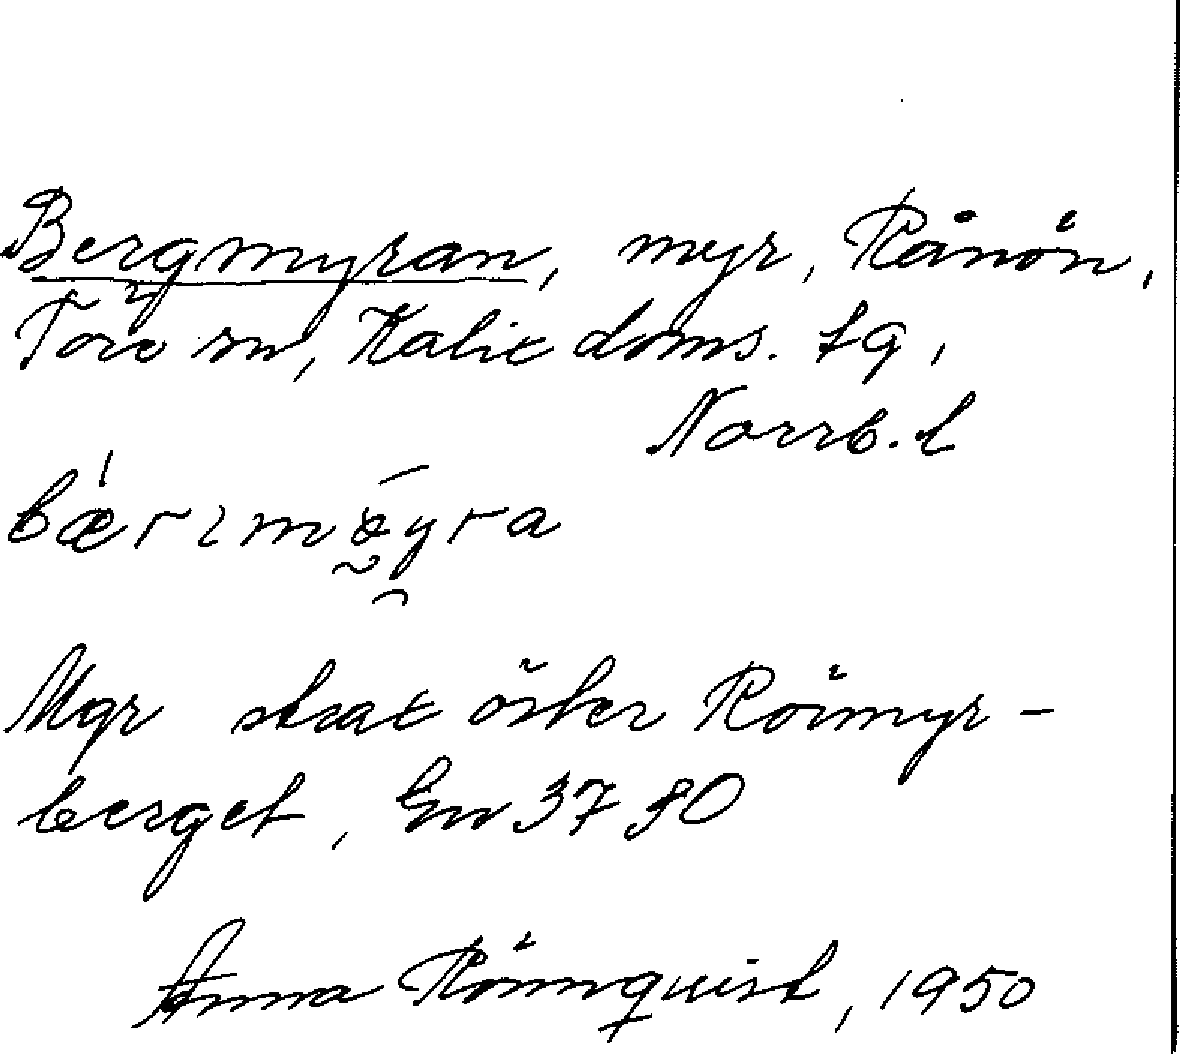 Bergmyran, myr, Rånön,
Töre sn, Kalix doms. tg,
Norrb. l
Myr strax öster Römyr-
berget, En 37 80
Anna Rönnquist, 1950